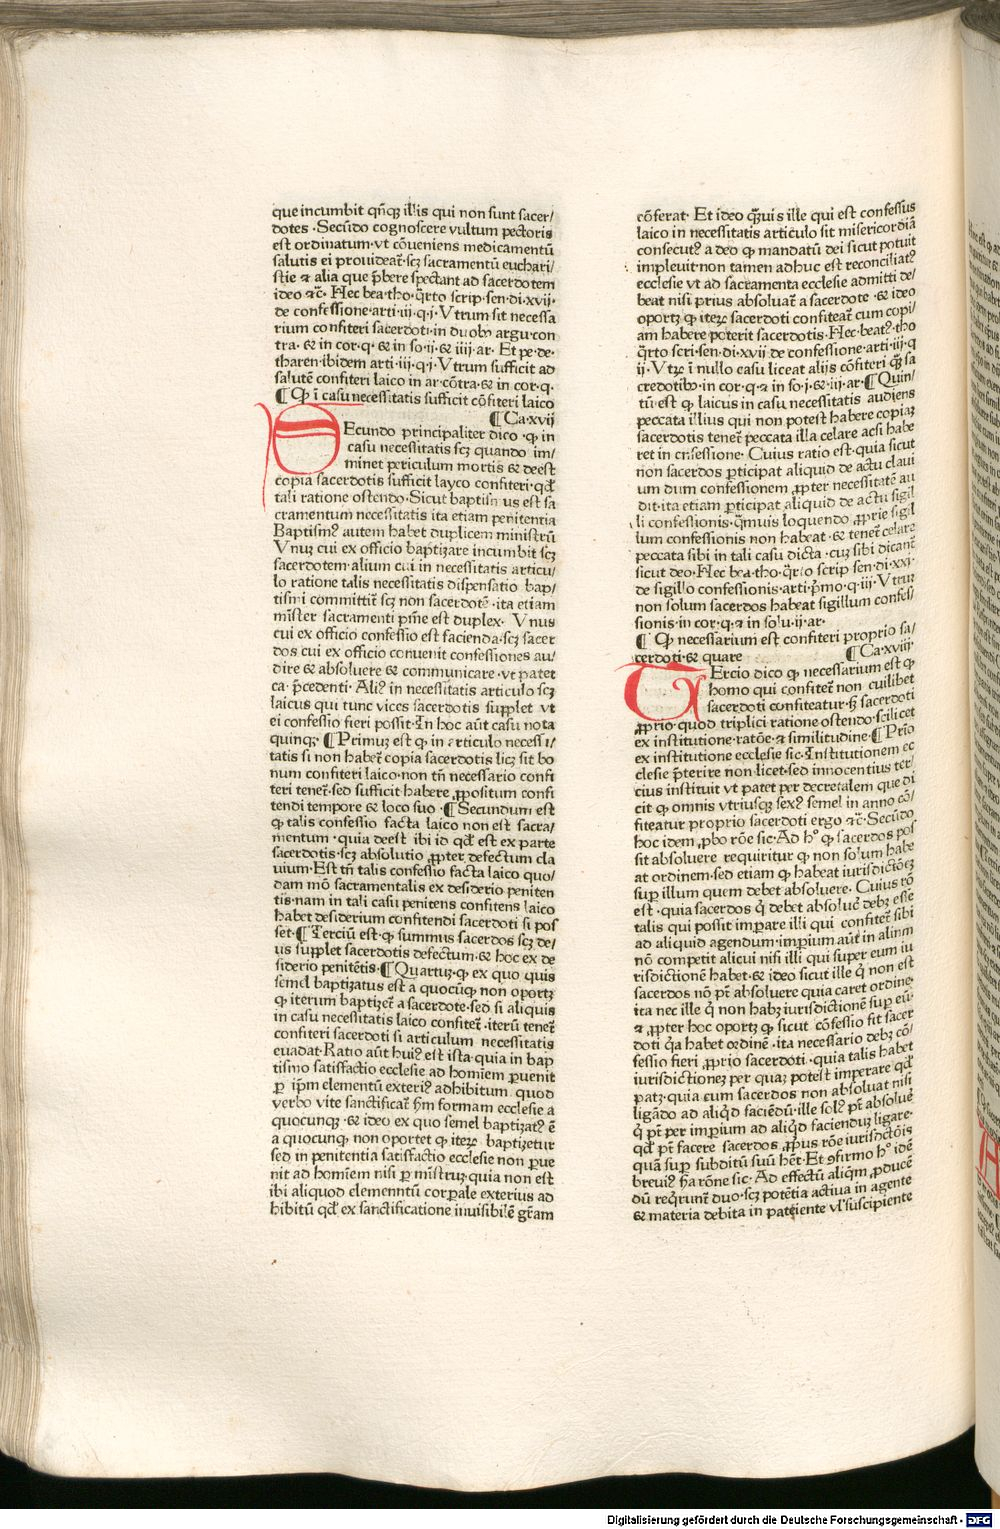 que incumbit qñqꝫ illis qui non sunt sacer/
dotes · Secūdo cognoscere vultum pectoris
est ordinatum · vt cōueniens medicamentū
salutis ei prouideat᷑ · scꝫ sacramentū euchari/
stie ⁊ alia que p̄bere spectant ad sacerdotem
ideo ⁊c̄ · Hec bea · tho · q̄rto scrip · sen · di · xvij ·
de confessione · arti · iij · q · j · Vtrum sit necessa
rium confiteri sacerdoti · in duobꝰ argu · con
tra · & in cor · q · & in so · ij · & iiij · ar · Et pe · de ·
tharen · ibidem arti · iij · q · j · Vtrum sufficit ad
salutē confiteri laico in ar · cōtra · & in cor · q ·
¶ Ꝙ ī casu necessitatis sufficit cōfiteri laico
¶ Ca · xvij
SEcundo principaliter dico · ꝙ in
casu necessitatis scꝫ quando im/
minet periculum mortis & deest
copia sacerdotis sufficit layco confiteri · qđ
tali ratione ostendo · Sicut baptismus est sa
cramentum necessitatis ita etiam penitentia
Baptismꝰ autem habet duplicem ministrū
Vnuꝫ cui ex officio baptiꝫare incumbit scꝫ
sacerdotem · alium cui in necessitatis articu/
lo ratione talis necessitatis dispensatio bap/
tismi committit᷑ scꝫ non sacerdotē · ita etiam
mīster sacramenti pn̄ie est duplex · Vnus
cui ex officio confessio est facienda · scꝫ sacer
dos cui ex officio conuenit confessiones au/
dire & absoluere & communicare · vt patet
ca · p̄cedenti · Aliꝰ in necessitatis articulo scꝫ
laicus qui tunc vices sacerdotis supplet vt
ei confessio fieri possit · In hoc aūt casu nota
quinqꝫ · ¶ Primuꝫ est ꝙ in articulo necessi/
tatis si non habet᷑ copia sacerdotis licꝫ sit bo
num confiteri laico · non tn̄ necessario confi
teri tenet᷑ · sed sufficit habere ꝓpositum confi
tendi tempore & loco suo · ¶ Secundum est
ꝙ talis confessio facta laico non est sacra/
mentum · quia deest ibi id qđ est ex parte
sacerdotis · scꝫ absolutio ꝓpter defectum cla
uium · Est tn̄ talis confessio facta laico quo/
dam mō sacramentalis ex desiderio peniten
tis · nam in tali casu penitens confitens laico
habet desiderium confitendi sacerdoti si pos
set · ¶ Terciū est · ꝙ summus sacerdos scꝫ de/
us supplet sacerdotis defectum · & hoc ex de
siderio penitētis · ¶ Quartuꝫ · ꝙ ex quo quis
semel baptiꝫatus est a quocūqꝫ non oportꝫ
ꝙ iterum baptiꝫet᷑ a sacerdote · sed si aliquis
in casu necessitatis laico confitet᷑ · iterū tenet᷑
confiteri sacerdoti si articulum necessitatis
euadat · Ratio aūt huiꝰ est ista · quia in bap
tismo satisfactio ecclesie ad homīem ꝑuenit
ꝑ ip̄m elementū exteriꝰ adhibitum quod
verbo vite sanctificat᷑ ẜm formam ecclesie a
quocunqꝫ · & ideo ex quo semel baptiꝫatꝰ ē
a quocunqꝫ non oportet ꝙ iteꝝ baptiꝫetur
sed in penitentia satisfactio ecclesie non ꝑue
nit ad homīem nisi ꝑ mīstruꝫ · quia non est
ibi aliquod elemenntū corꝑale exterius ad
hibitū qđ ex sanctificatione inuisibilē gr̄am
cōferat · Et ideo q̄ꝫuis ille qui est confessus
laico in necessitatis articulo sit misericordiā
consecutꝰ a deo ꝙ mandatū dei sicut potuit
impleuit · non tamen adhuc est reconciliatꝰ
ecclesie vt ad sacramenta ecclesie admitti de/
beat nisi prius absoluat᷑ a sacerdote · & ideo
oportꝫ ꝙ iteꝝ sacerdoti confiteat᷑ cum copi/
am habere poterit sacerdotis · Hec · beatꝰ · tho
q̄rto scri · sen · di · xvij de confessione · arti · iij · q
ij · Vtꝝ ī nullo casu liceat alijs cōfiteri q̄ꝫ sa
cerdotibꝰ · in cor · q · ⁊ in so · j · & · iij · ar · ¶ Quin/
tū est ꝙ laicus in casu necessitatis audiens
peccata illius qui non potest habere copiaꝫ
sacerdotis tenet᷑ peccata illa celare acsi habe
ret in cōfessione · Cuius ratio est · quia sicut
non sacerdos ꝑticipat aliquid de actu claui
um dum confessionem ꝓpter necessitatē au
dit · ita etiam ꝑticipat aliquid de actu sigil
li confessionis · q̄muis loquendo ꝓprie sigil
lum confessionis non habeat · & tenet᷑ celare
peccata sibi in tali casu dicta · cuꝫ sibi dicant᷑
sicut deo · Hec bea · tho · q̄rto scrip sen · di · xxi ·
de sigillo confessionis · arti · p̄mo · q · iij · Vtruꝫ
non solum sacerdos habeat sigillum confes/
sionis · in cor · q · ⁊ in solu · ij · ar ·
¶ Ꝙ necessarium est confiteri proprio sa/
cerdoti · & quare ¶ Ca · xviij ·
TErcio dico ꝙ necessarium est ꝙ
homo qui confitet᷑ non cuilibet
sacerdoti confiteatur · ẜꝫ sacerdoti
ꝓprio · quod triplici ratione ostendo · scilicet
ex institutione · ratōe · ⁊ similitudine · ¶ Prīo
ex institutione ecclesie sic · Institutionem ec
clesie p̄terire non licet · sed innocentius ter/
cius instituit vt patet per decretalem que di
cit ꝙ omnis vtriusqꝫ sexꝰ semel in anno cō/
fiteatur proprio sacerdoti ergo ⁊c̄ · Secūdo
hoc idem ꝓbo rōe sic · Ad hꝰ ꝙ sacerdos pos
sit absoluere requiritur ꝙ non solum habe
at ordinem · sed etiam ꝙ habeat iurisdictōeꝫ
suꝑ illum quem debet absoluere · Cuius rō
est · quia sacerdos q̄ debet absoluē debꝫ esse
talis qui possit imꝑare illi qui confitet᷑ sibi
ad aliquid agendum · imꝑium aūt in alium
nō competit alicui nisi illi qui super eum iu
risdictionē habet · & ideo sicut ille q̄ non est
sacerdos nō pt̄ absoluere quia caret ordine ·
ita nec ille q̄ non habꝫ iurisdictionē suꝑ eū ·
⁊ ꝓpter hoc oportꝫ ꝙ sicut cōfessio fit sacer
doti q̄a habet ordinē · ita necessario debꝫ cō/
fessio fieri ꝓprio sacerdoti · quia talis habet
iurisdictioneꝫ per quaꝫ potest imperare qđ
patꝫ · quia cum sacerdos non absoluat nisi
ligādo ad aliq̄d faciēdū · ille solꝰ pt̄ absoluē
q̄ pt̄ per imꝑium ad aliq̄d faciendūꝫ ligare ·
qđ pt̄ facere sacerdos ꝓpus rōe iurisdictōis
quā suꝑ subditū suū hēt · Et ꝯfirmo hꝰ idē
breuiꝰ ẜa rōne sic · Ad effectū aliq̄m ꝓducē
dū req̄runt᷑ duo · scꝫ potētia actiua in agente
& materia debita in patiente vl' suscipiente
Digitalisierung gefördert durch die Deutsche Forschungsgemeinschaft - DFG